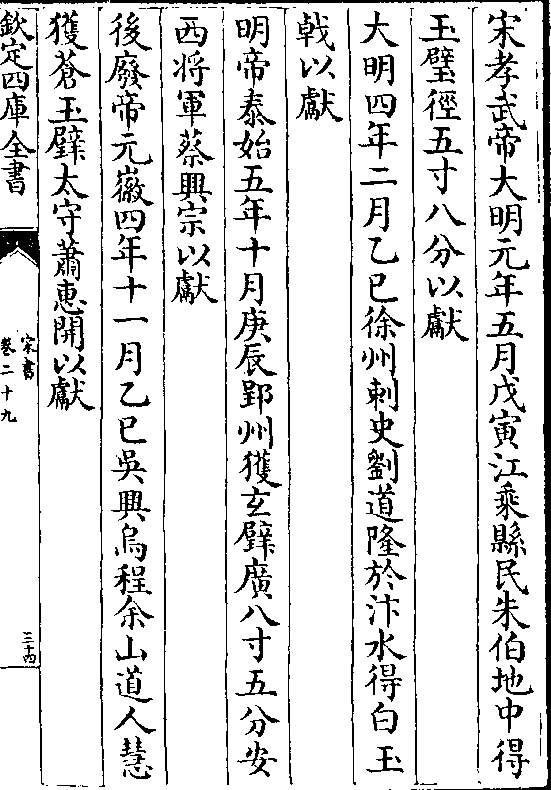 宋孝武帝大明元年五月戊寅江乗縣民朱伯地中得
玉璧徑五寸八分以獻
大明四年二月乙巳徐州刺史劉道隆於汴水得白玉
戟以獻
明帝泰始五年十月庚辰郢州獲玄璧廣八寸五分安
西将軍蔡興宗以獻
後廢帝元徽四年十一月乙巳吳興烏程余山道人慧
獲蒼玉璧太守蕭惠開以獻
欽定四庫全書
宋書
卷二十九
三十四